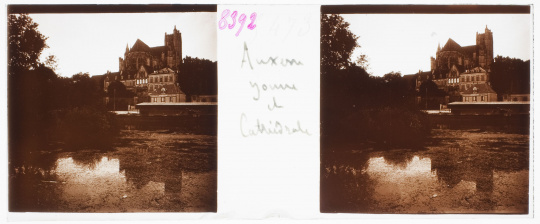 8392
Auxerre
Yonne et
Cathédrale